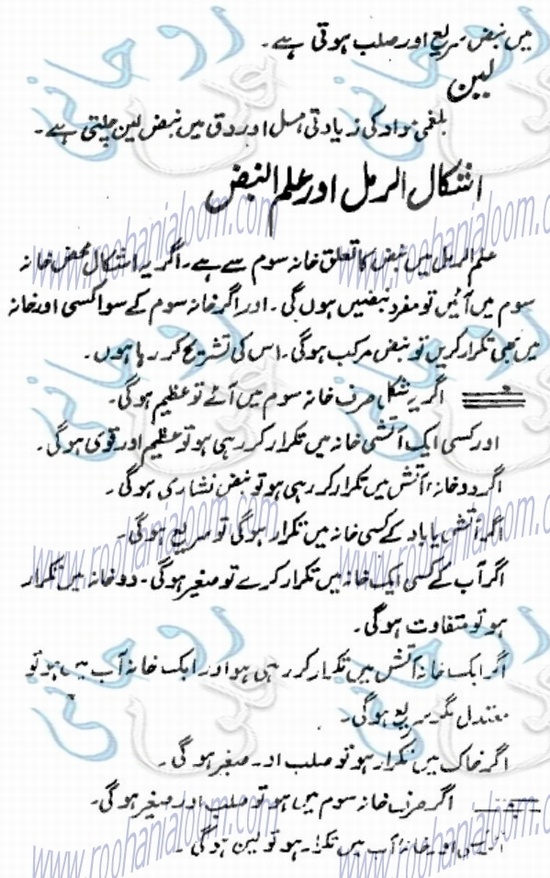 میں نبض سریع اور صلب ہوتی ہے۔
لین
بلغمی مواد کی زیادتی، سل اور دق میں نبض لین چلتی ہے۔
اشکال الرمل اور علم النبض
علم الرمل میں نبض کا تعلق خانہ سوم سے ہے۔ اگر یہ اشکال محض خانہ
سوم میں آئیں تو مفرد نبضیں ہوں گی۔ اور اگر خانہ سوم کے سوا کسی اور خانہ
میں بھی تکرار کریں تو نبض مرکب ہوگی۔ اس کی تشریح کر رہا ہوں۔
اگر یہ شکل صرف خانہ سوم میں آئے تو عظیم ہوگی۔
اور کسی ایک آتشی خانہ میں تکرار کر رہی ہو تو عظیم اور قوی ہوگی۔
اگر دو خانہ آتش میں تکرار کر رہی ہو تو نبض نشاری ہوگی۔
اگر آتش یا باد کے کسی خانہ میں تکرار ہوگی تو سریع ہوگی۔
اگر آب کے کسی ایک خانہ میں تکرار کرے تو صغیر ہوگی۔ دو خانہ میں تکرار
ہو تو متفاوت ہوگی۔
اگر ایک خانہ آتش میں تکرار کر رہی ہو اور ایک خانہ آب میں ہو تو
معتدل مگر سریع ہوگی۔
اگر خاک میں تکرار ہو تو صلب اور صغیر ہوگی۔
اگر صرف خانہ سوم میں ہو تو صلب اور صغیر ہوگی۔
اور خانہ آب میں تکرار ہو تو لین ہوگی۔
www.roohanialoom.com